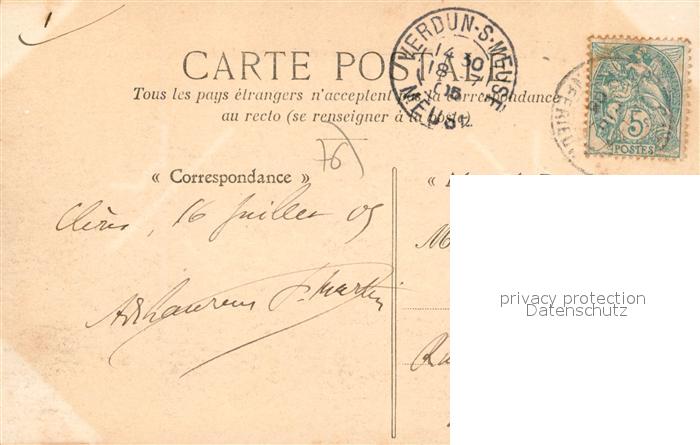 CARTE POSTALE
Tous les pays étrangers n'acceptent pas la correspondance
au recto (se renseigner à la poste).
VERDUN-S-MEUSE
14 30
18 -7
05
MEUSE
5c
POSTES
76
« Correspondance »
«
Clères, 16 Juillet 05
M
privacy protection
Datenschutz